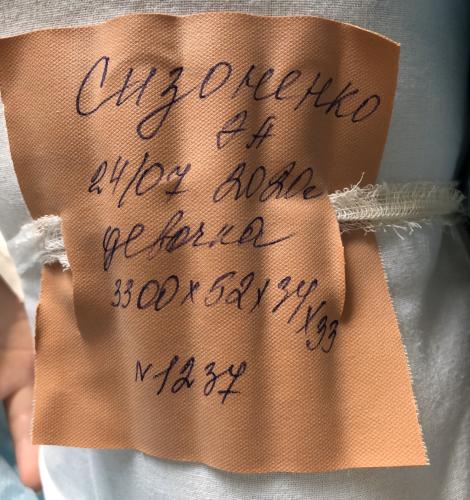 Сизоненко
24/07 2020г
девочка
3300x52x34
x33
N1237